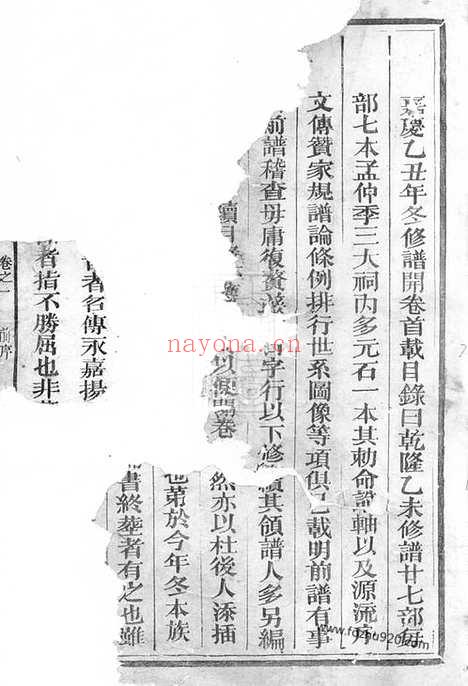 嘉慶乙丑年冬修譜開卷首載目錄曰乾隆乙未修譜廿七部每
部七本孟仲季三大祠內多元石一本其勅命誥軸以及源流
文傳贊家規譜論條例排行世系圖像等項俱已載明前譜有事
前譜稽查毋庸復贅 字行以下修續其領譜人多另編
以便開卷 然亦以杜後人添插
也第於今年冬本族
者名傳永嘉揚 書終葬者有之也雖
者指不勝屈也非
卷之一 前序
nayona.cn